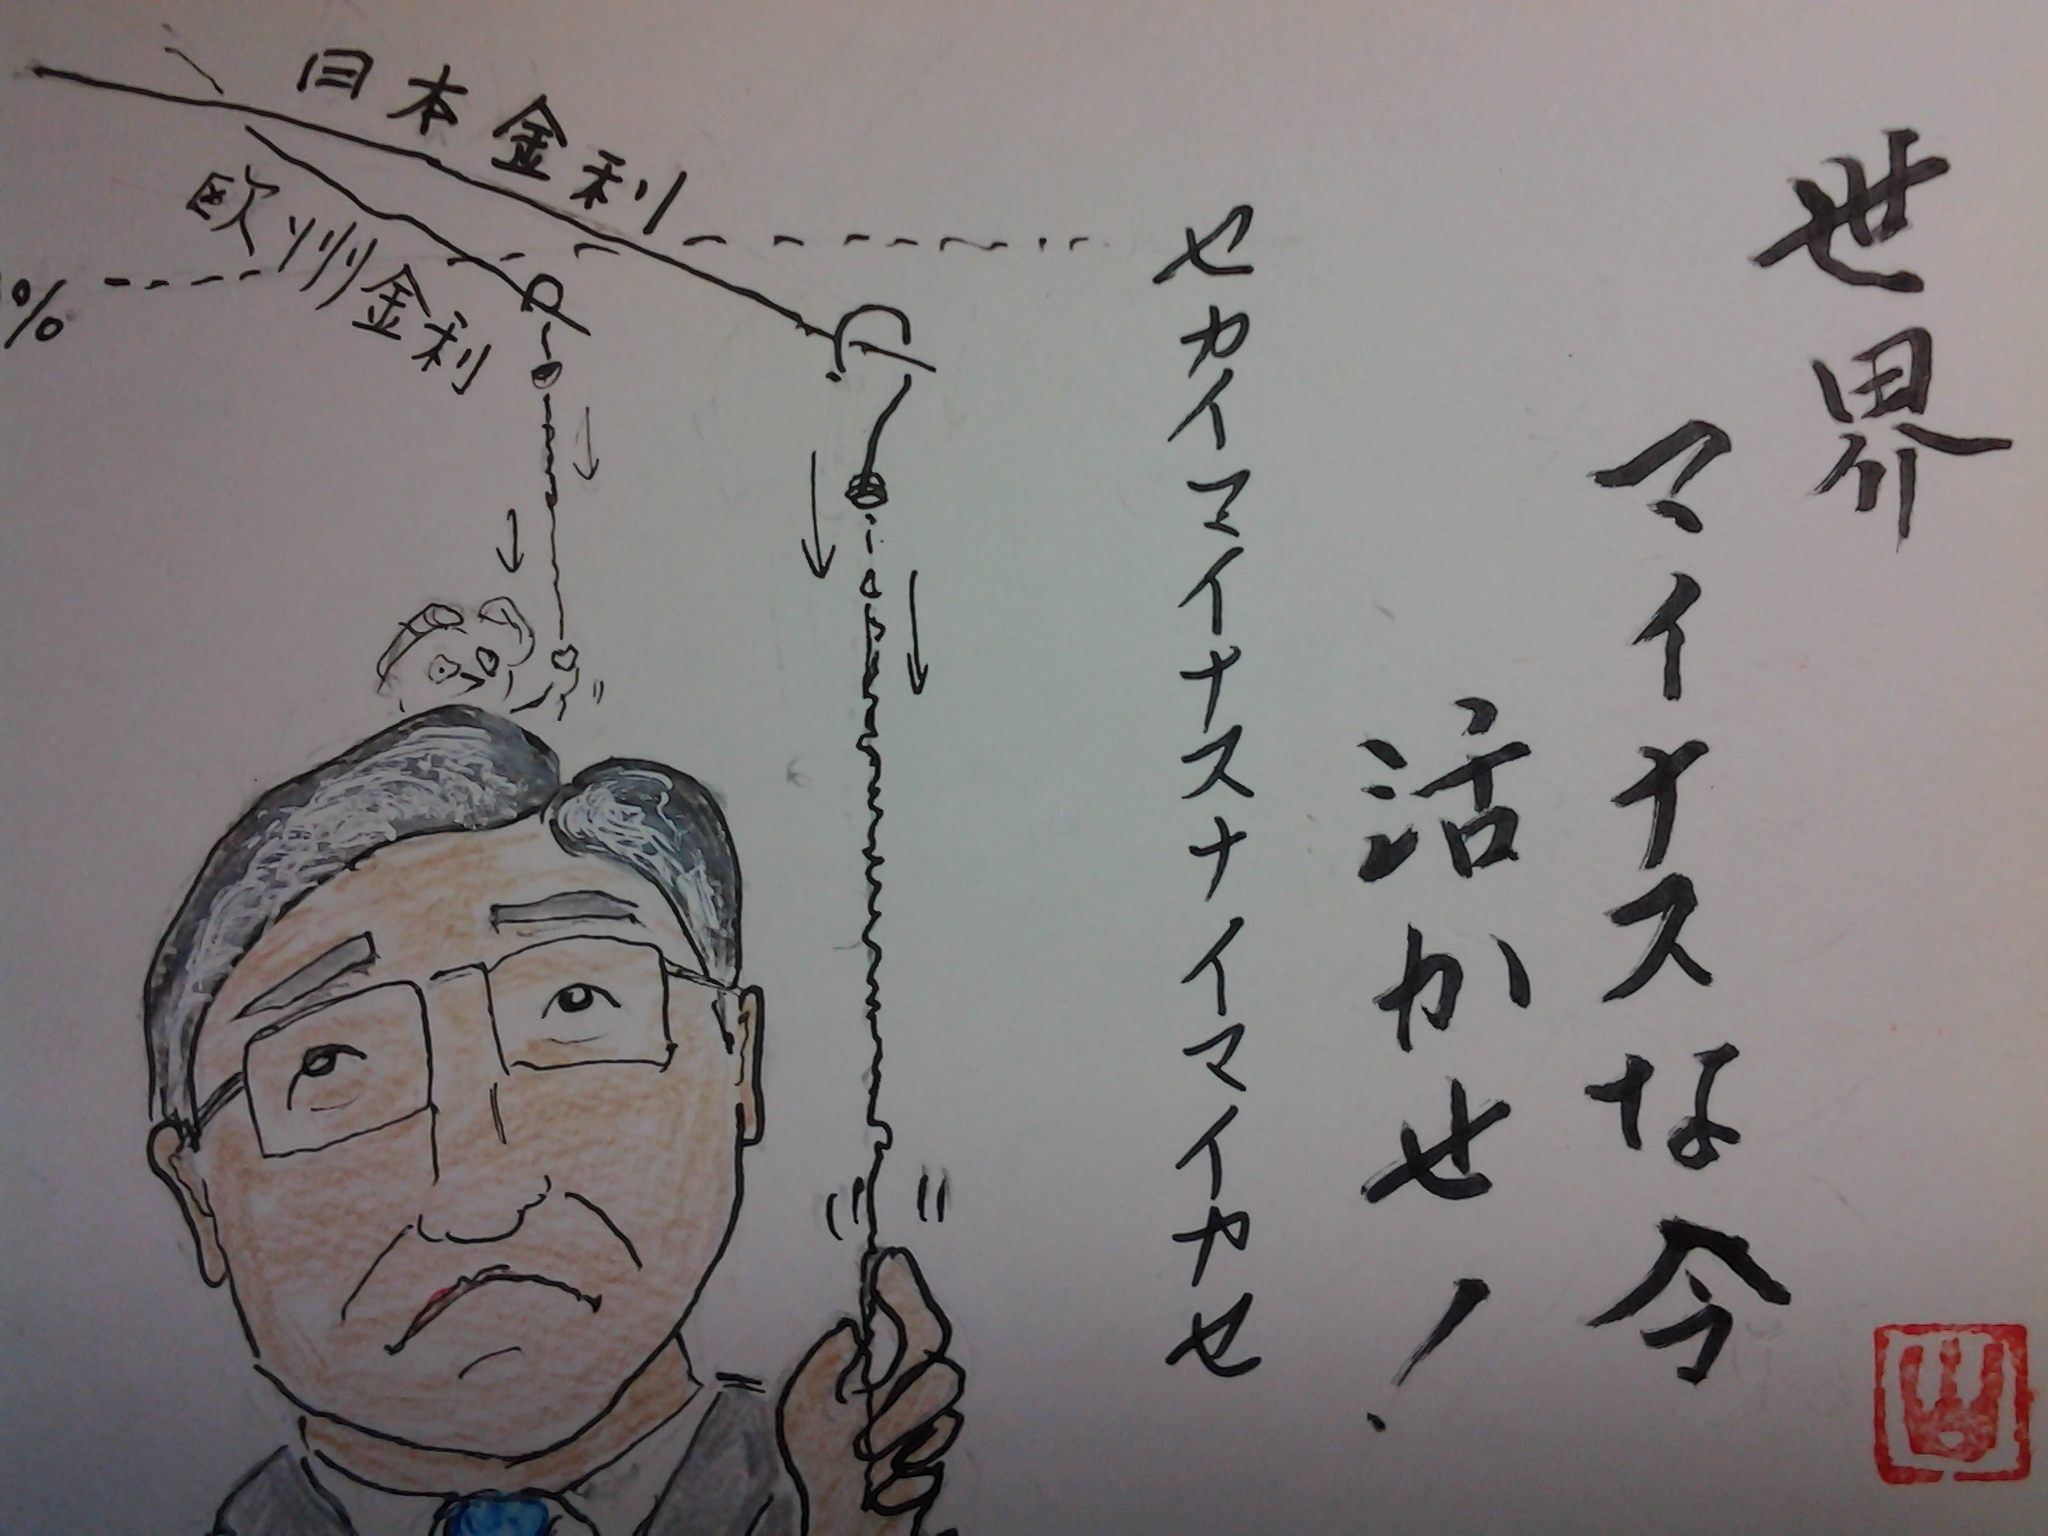 世界
マイナスな今
活かせ！
セカイマイナスナイマイカセ
日本金利
欧州金利
%